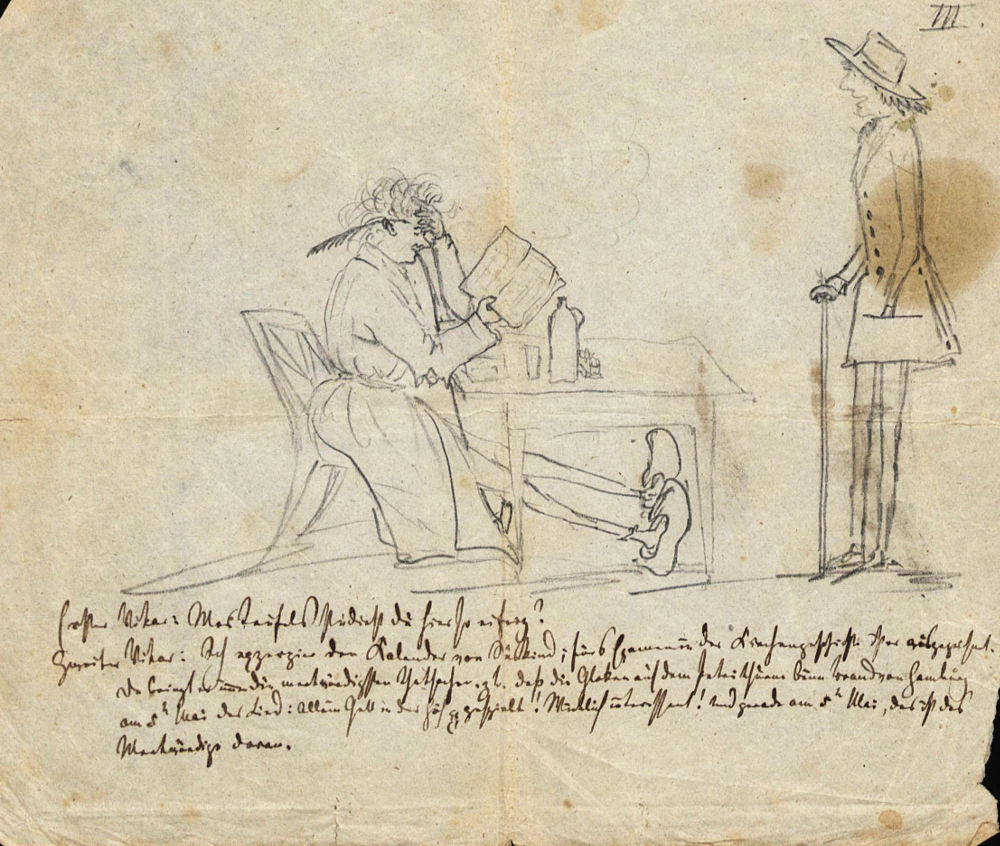 III.
Erster Vikar: Was Teufels studirst du hier so eifrig?
Zweiter Vikar: Ich exzerpire den Kalender von Süskind; fürs Examen in der Kirchengeschichte ist er ausgezeichnet.
Da bringt er immer die merkwürdigsten Thatsachen, z. b. daß die Gloken auf dem Petrithurm beim Brand von Hamburg
am 5t Mai das Lied: Allein Gott in der Höh pp gespielt! Wirklich interessant! Und gerade am 5t Mai, das ist das
Merkwürdige daran.